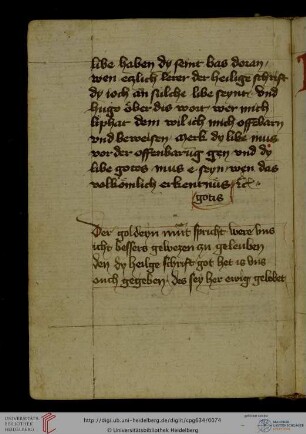 libe haben dy seint bas doran
wen etzlich lerer der heilige schrift
dy ioch an sulche libe seynt und
hugo über dis wort wer mich
liphat dem wil ich mich offebarn
und beweisen merk dy libe mus
vor der offenbarūg gen und dy
libe gotes mus e seyn wen das
volkömlich erkentnus etc
gotis
Der goldeyn mūt spricht were uns
icht bessers gewezen zu geleuben
den dy heilge schrift got het is uns
ouch gegeben des sey her ewig gelobet
UNIVERSITÄTS-
BIBLIOTHEK
HEIDELBERG
http://digi.ub.uni-heidelberg.de/diglit/cpg634/0074
© Universitätsbibliothek Heidelberg